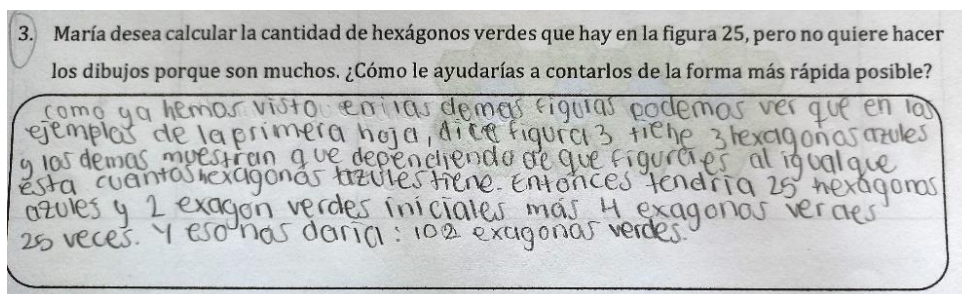 3. María desea calcular la cantidad de hexágonos verdes que hay en la figura 25, pero no quiere hacer
los dibujos porque son muchos. ¿Cómo le ayudarías a contarlos de la forma más rápida posible?
como ya hemos visto en las demas figuras podemos ver que en los
ejemplos de la primera hoja, dice figura 3 tiene 3 hexagonos azules
y los demas muestran que dependiendo de que figura es al igual que
esta cuantos hexagonos azules tiene. Entonces tendría 25 hexagonos
azules y 2 exagon verdes iniciales más 4 exagonos verdes
25 veces. Y eso nos daría: 102 exagonos verdes.